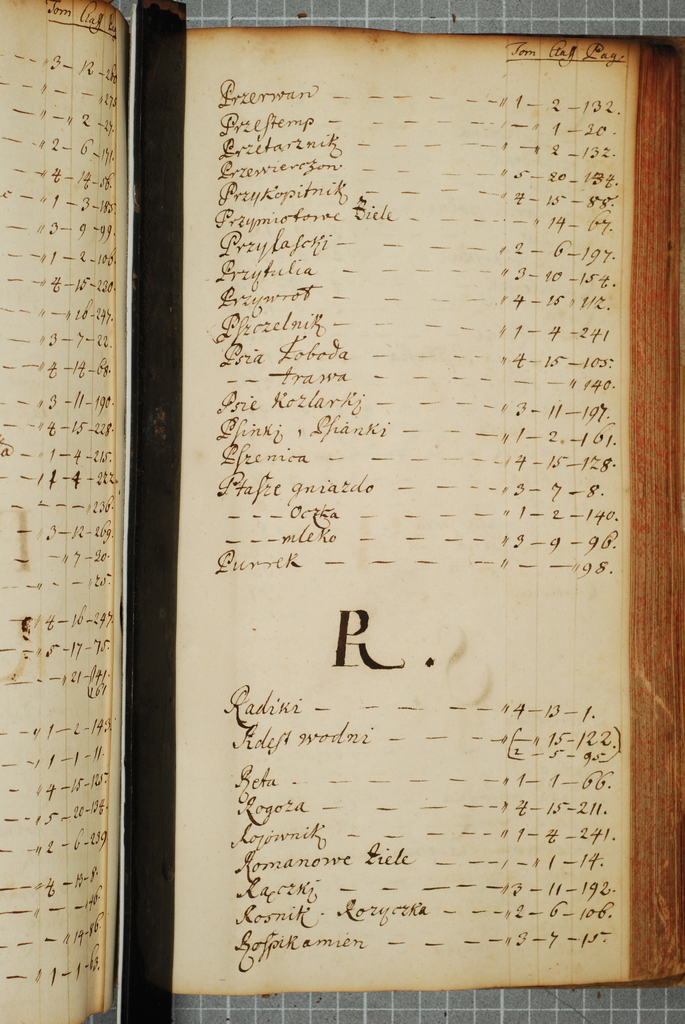 Tom Claß
3 - 12 -
" 2 -
2 - 6 - 171.
4 - 14 - 58.
1 - 3 - 185
3 - 9 - 99.
1 - 2 - 106
4 - 15 - 230
" 16 - 247.
3 - 7 - 22.
4 - 14 - 68.
3 - 11 - 190.
4 - 15 - 228.
1 - 4 - 215.
1 - 4 - 222
236.
3 - 12 - 269.
" 7 - 20.
" 25.
4 - 16 - 247.
5 - 17 - 75.
" 21 - 141.
161
1 - 2 - 143.
1 - 1 - 11.
4 - 15 - 125.
5 - 20 - 134.
2 - 6 - 239
4 - 13 - 8.
" 14 - 86.
" 1 - 1 - 63.
Tom Claß Pag.
Przerwan — — — — — " 1 - 2 - 132.
Przestemp — — — — — " 1 - 20.
Przetacznik — — — — " " 2 - 132.
Przewierczon — — — — " 5 - 20 - 134.
Przykopitnik — — — — " 4 - 15 - 88.
Przymiotowe Ziele — — — — " 14 - 67.
Przylasczki — — — — " 2 - 6 - 197.
Przytulia — — — — " 3 - 10 - 154.
Przywrot — — — — " 4 - 15 " 112.
Pszczelnik — — — — " 1 - 4 - 241
Psia Łoboda — — — — " 4 - 15 - 103.
— — trawa — — — — — " 140.
Psie Kozlarki — — — — " 3 - 11 - 197.
Psinki, Psianki — — — " 1 - 2 - 161.
Pszenica — — — — " 4 - 15 - 128.
Ptasze gniazdo — — — " 3 - 7 - 8.
— — — Oczka — — — — " 1 - 2 - 140.
— — — mleko — — — — " 3 - 9 - 96.
Purrek — — — — — " — — " 98.
R.
Radiki — — — — — " 4 - 13 - 1.
Rdęst wodni — — — — " ( — " 15 - 122.
2 - 5 - 95.)
Reta — — — — — " 1 - 1 - 66.
Rogoza — — — — — " 4 - 15 - 211.
Rojownik — — — — " 1 - 4 - 241.
Romanowe Ziele — — — " 1 - 14.
Rączki — — — — " 3 - 11 - 192.
Rosnik. Rozyczka — — — " 2 - 6 - 106.
Rospikamien — — — " 3 - 7 - 15.